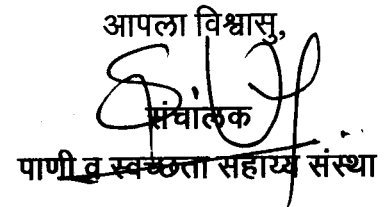 आपला विश्वासु,
संचालक
पाणी व स्वच्छता सहाय्य संस्था